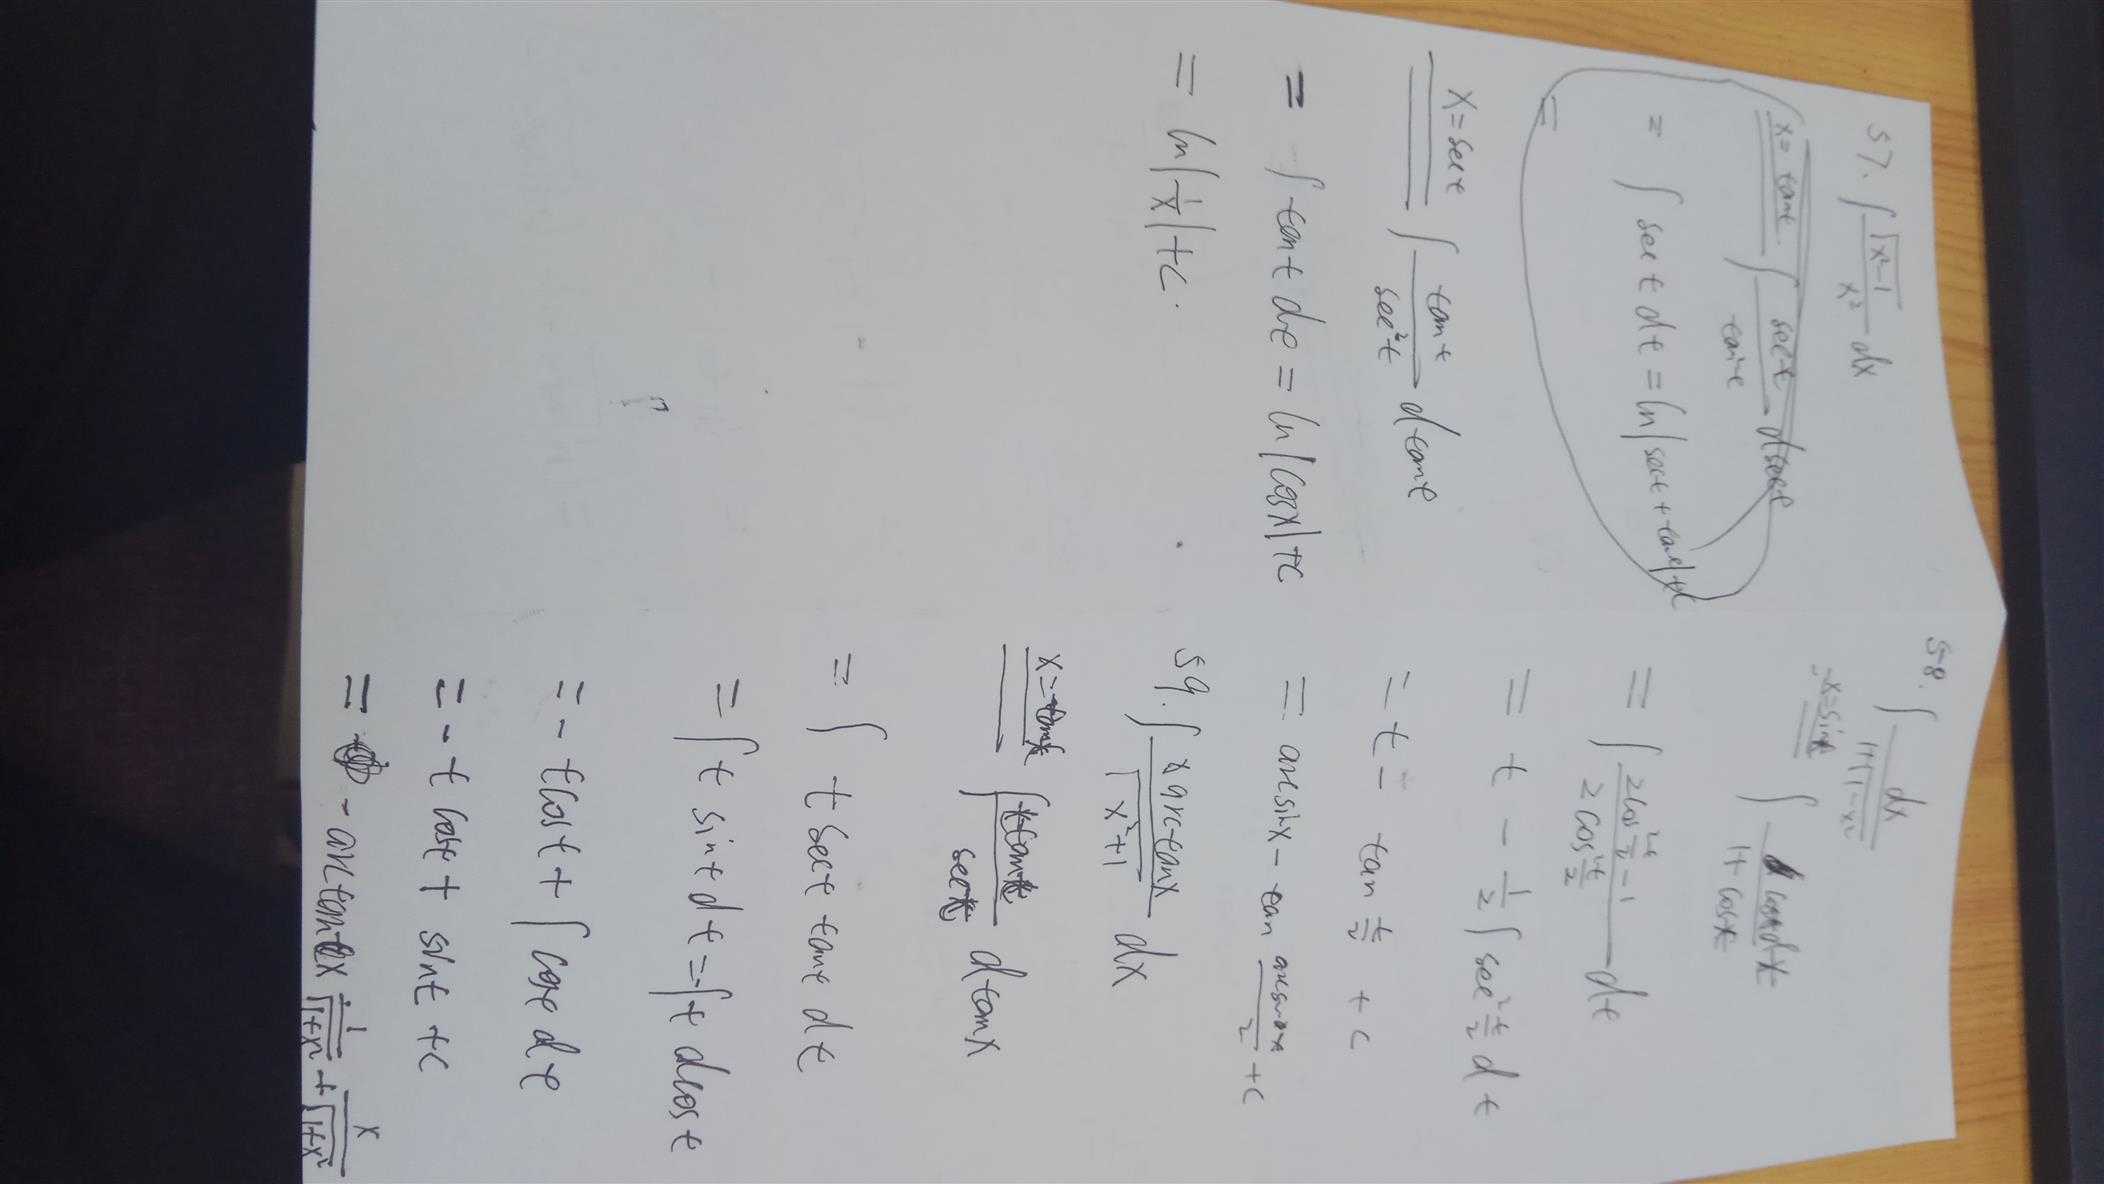 57. ∫ √(x²-1) / x² dx
x=tant ∫ sect / tant dsect
= ∫ sect dt = ln|sect+tant|+c
=
x=sect ∫ tant / sec²t dtant
= ∫ tant dt = ln|cosx|+c
= ln|1/x|+c.
58. ∫ dx / 1+√(1-x²)
x=sint ∫ costdt / 1+cost
= ∫ (2cos² t/2 - 1) / (2cos² t/2) dt
= t - 1/2 ∫ sec² t/2 dt
= t - tan t/2 + c
= arcsinx - tan arcsinx/2 + c
59. ∫ xarctanx / √(x²+1) dx
x=tant ∫ t tant / sect dtanx
= ∫ t sect tant dt
= ∫ t sint dt = -∫ t dcost
= - tcost + ∫ cost dt
= - t cost + sint + c
= - arctanx 1/√(1+x²) + x/√(1+x²)